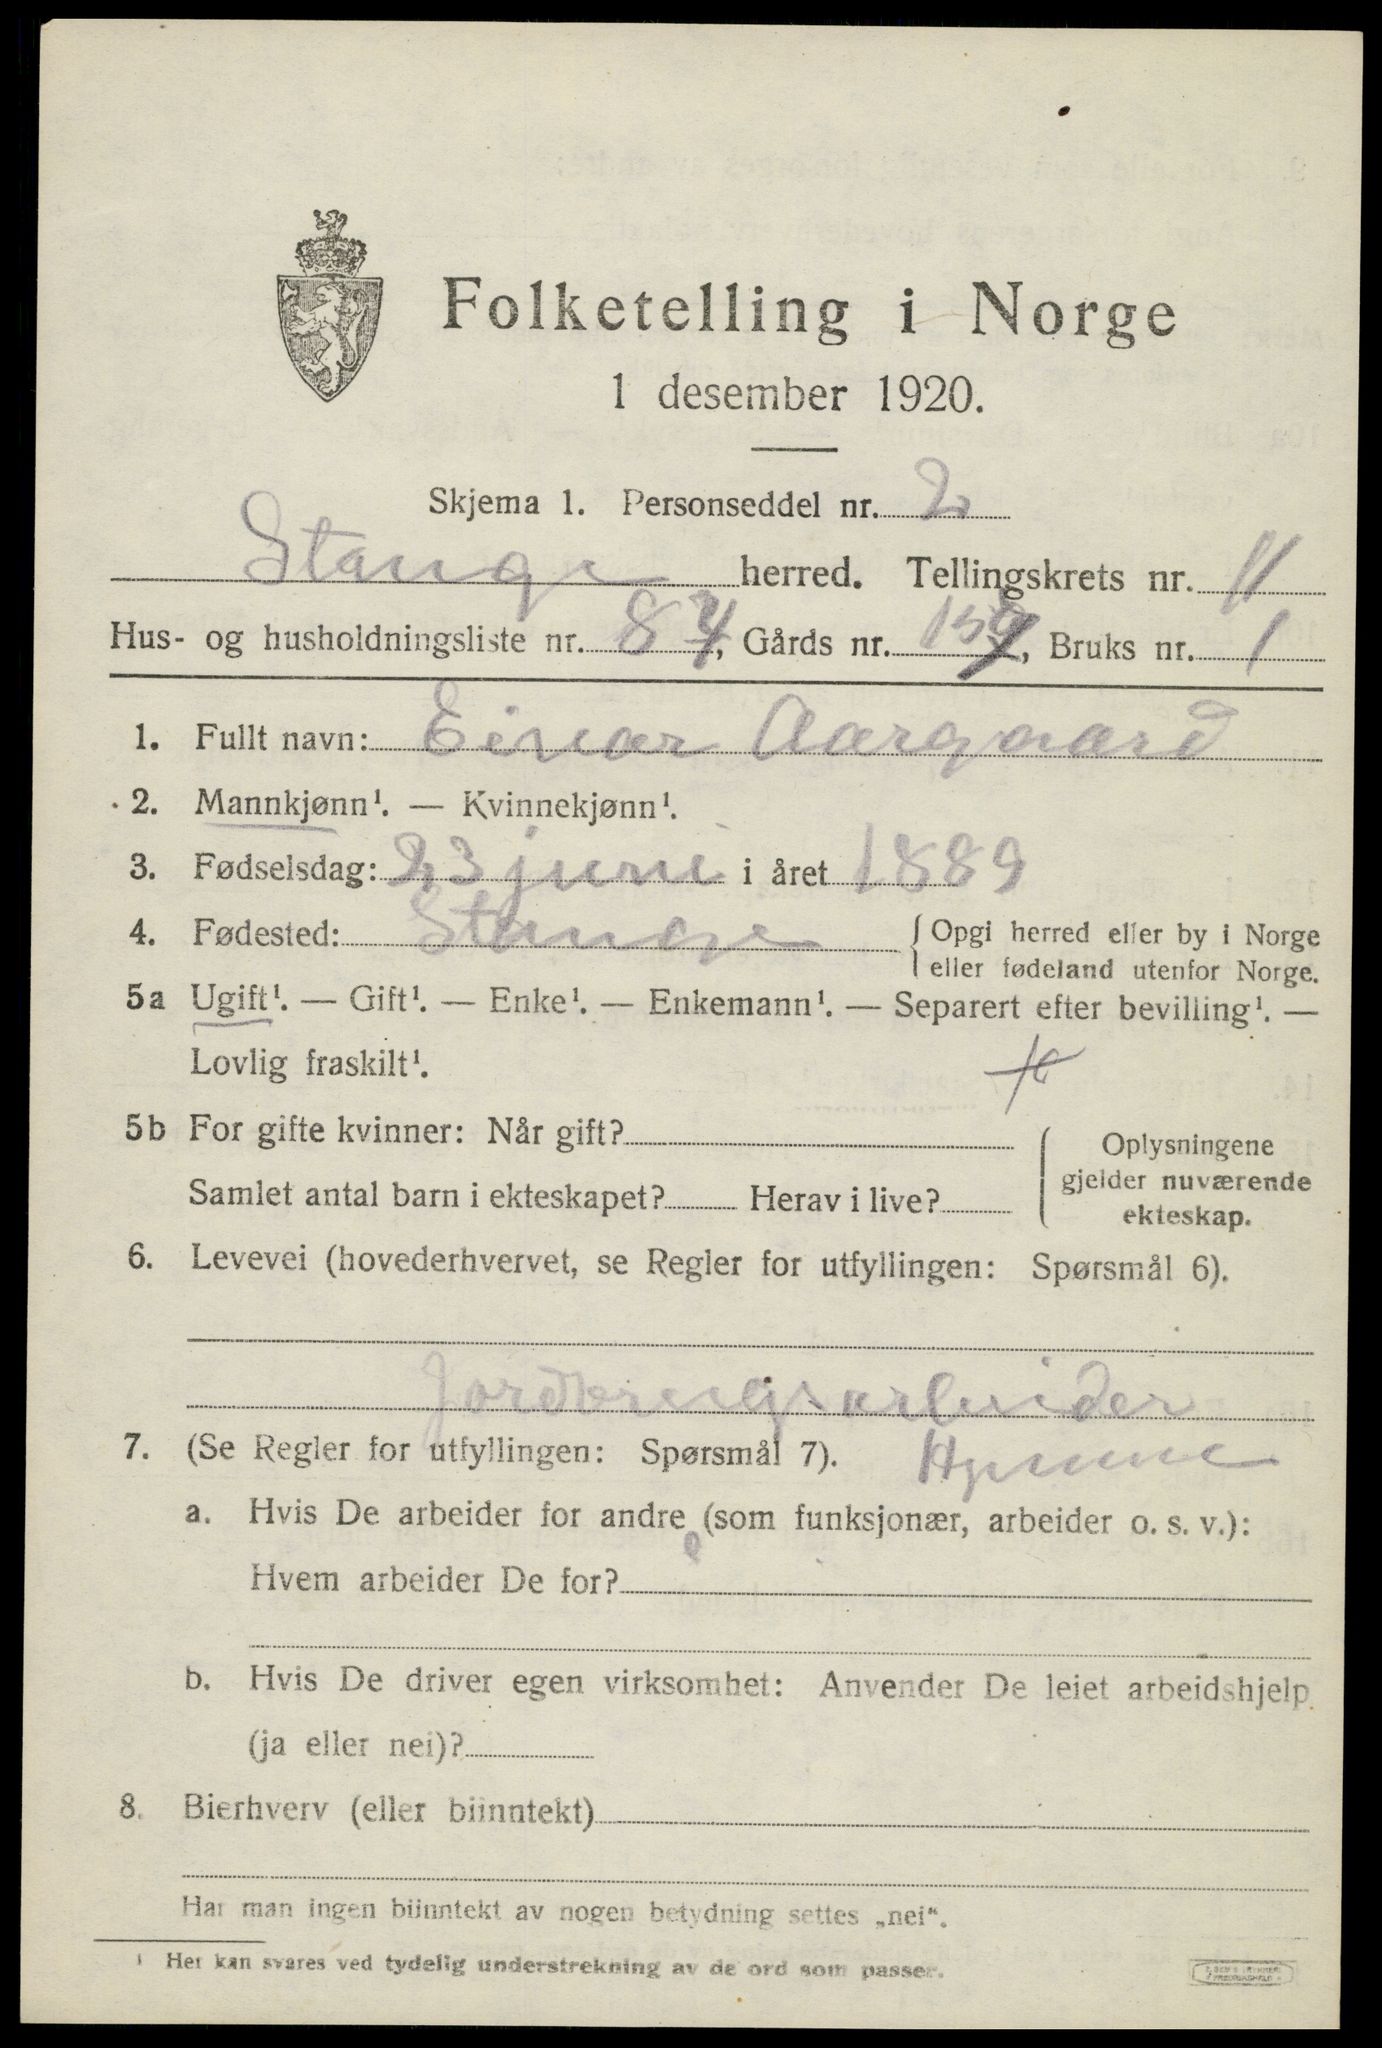 Folketelling i Norge
1 desember 1920.
Skjema 1. Personseddel nr. 2
Stange herred. Tellingskrets nr. 11
Hus- og husholdningsliste nr. 84, Gårds nr. 159, Bruks nr. 1
1. Fullt navn: Einar Aargaard
2. Mannkjønn¹. — Kvinnekjønn¹.
3. Fødselsdag: 23 juni i året 1889
4. Fødested: Stange { Opgi herred eller by i Norge
eller fødeland utenfor Norge.
5a Ugift¹. — Gift¹. — Enke¹. — Enkemann¹. — Separert efter bevilling¹. —
Lovlig fraskilt¹.
5b For gifte kvinner: Når gift?
Samlet antal barn i ekteskapet? Herav i live?
{ Oplysningene
gjelder nuværende
ekteskap.
6. Levevei (hovederhvervet, se Regler for utfyllingen: Spørsmål 6).
Jordbrugsarbeider
7. (Se Regler for utfyllingen: Spørsmål 7). Hjemme
a. Hvis De arbeider for andre (som funksjonær, arbeider o. s. v.):
Hvem arbeider De for?
b. Hvis De driver egen virksomhet: Anvender De leiet arbeidshjelp
(ja eller nei)?
8. Bierhverv (eller biinntekt)
Har man ingen biinntekt av nogen betydning settes „nei“.
¹ Her kan svares ved tydelig understrekning av de ord som passer.